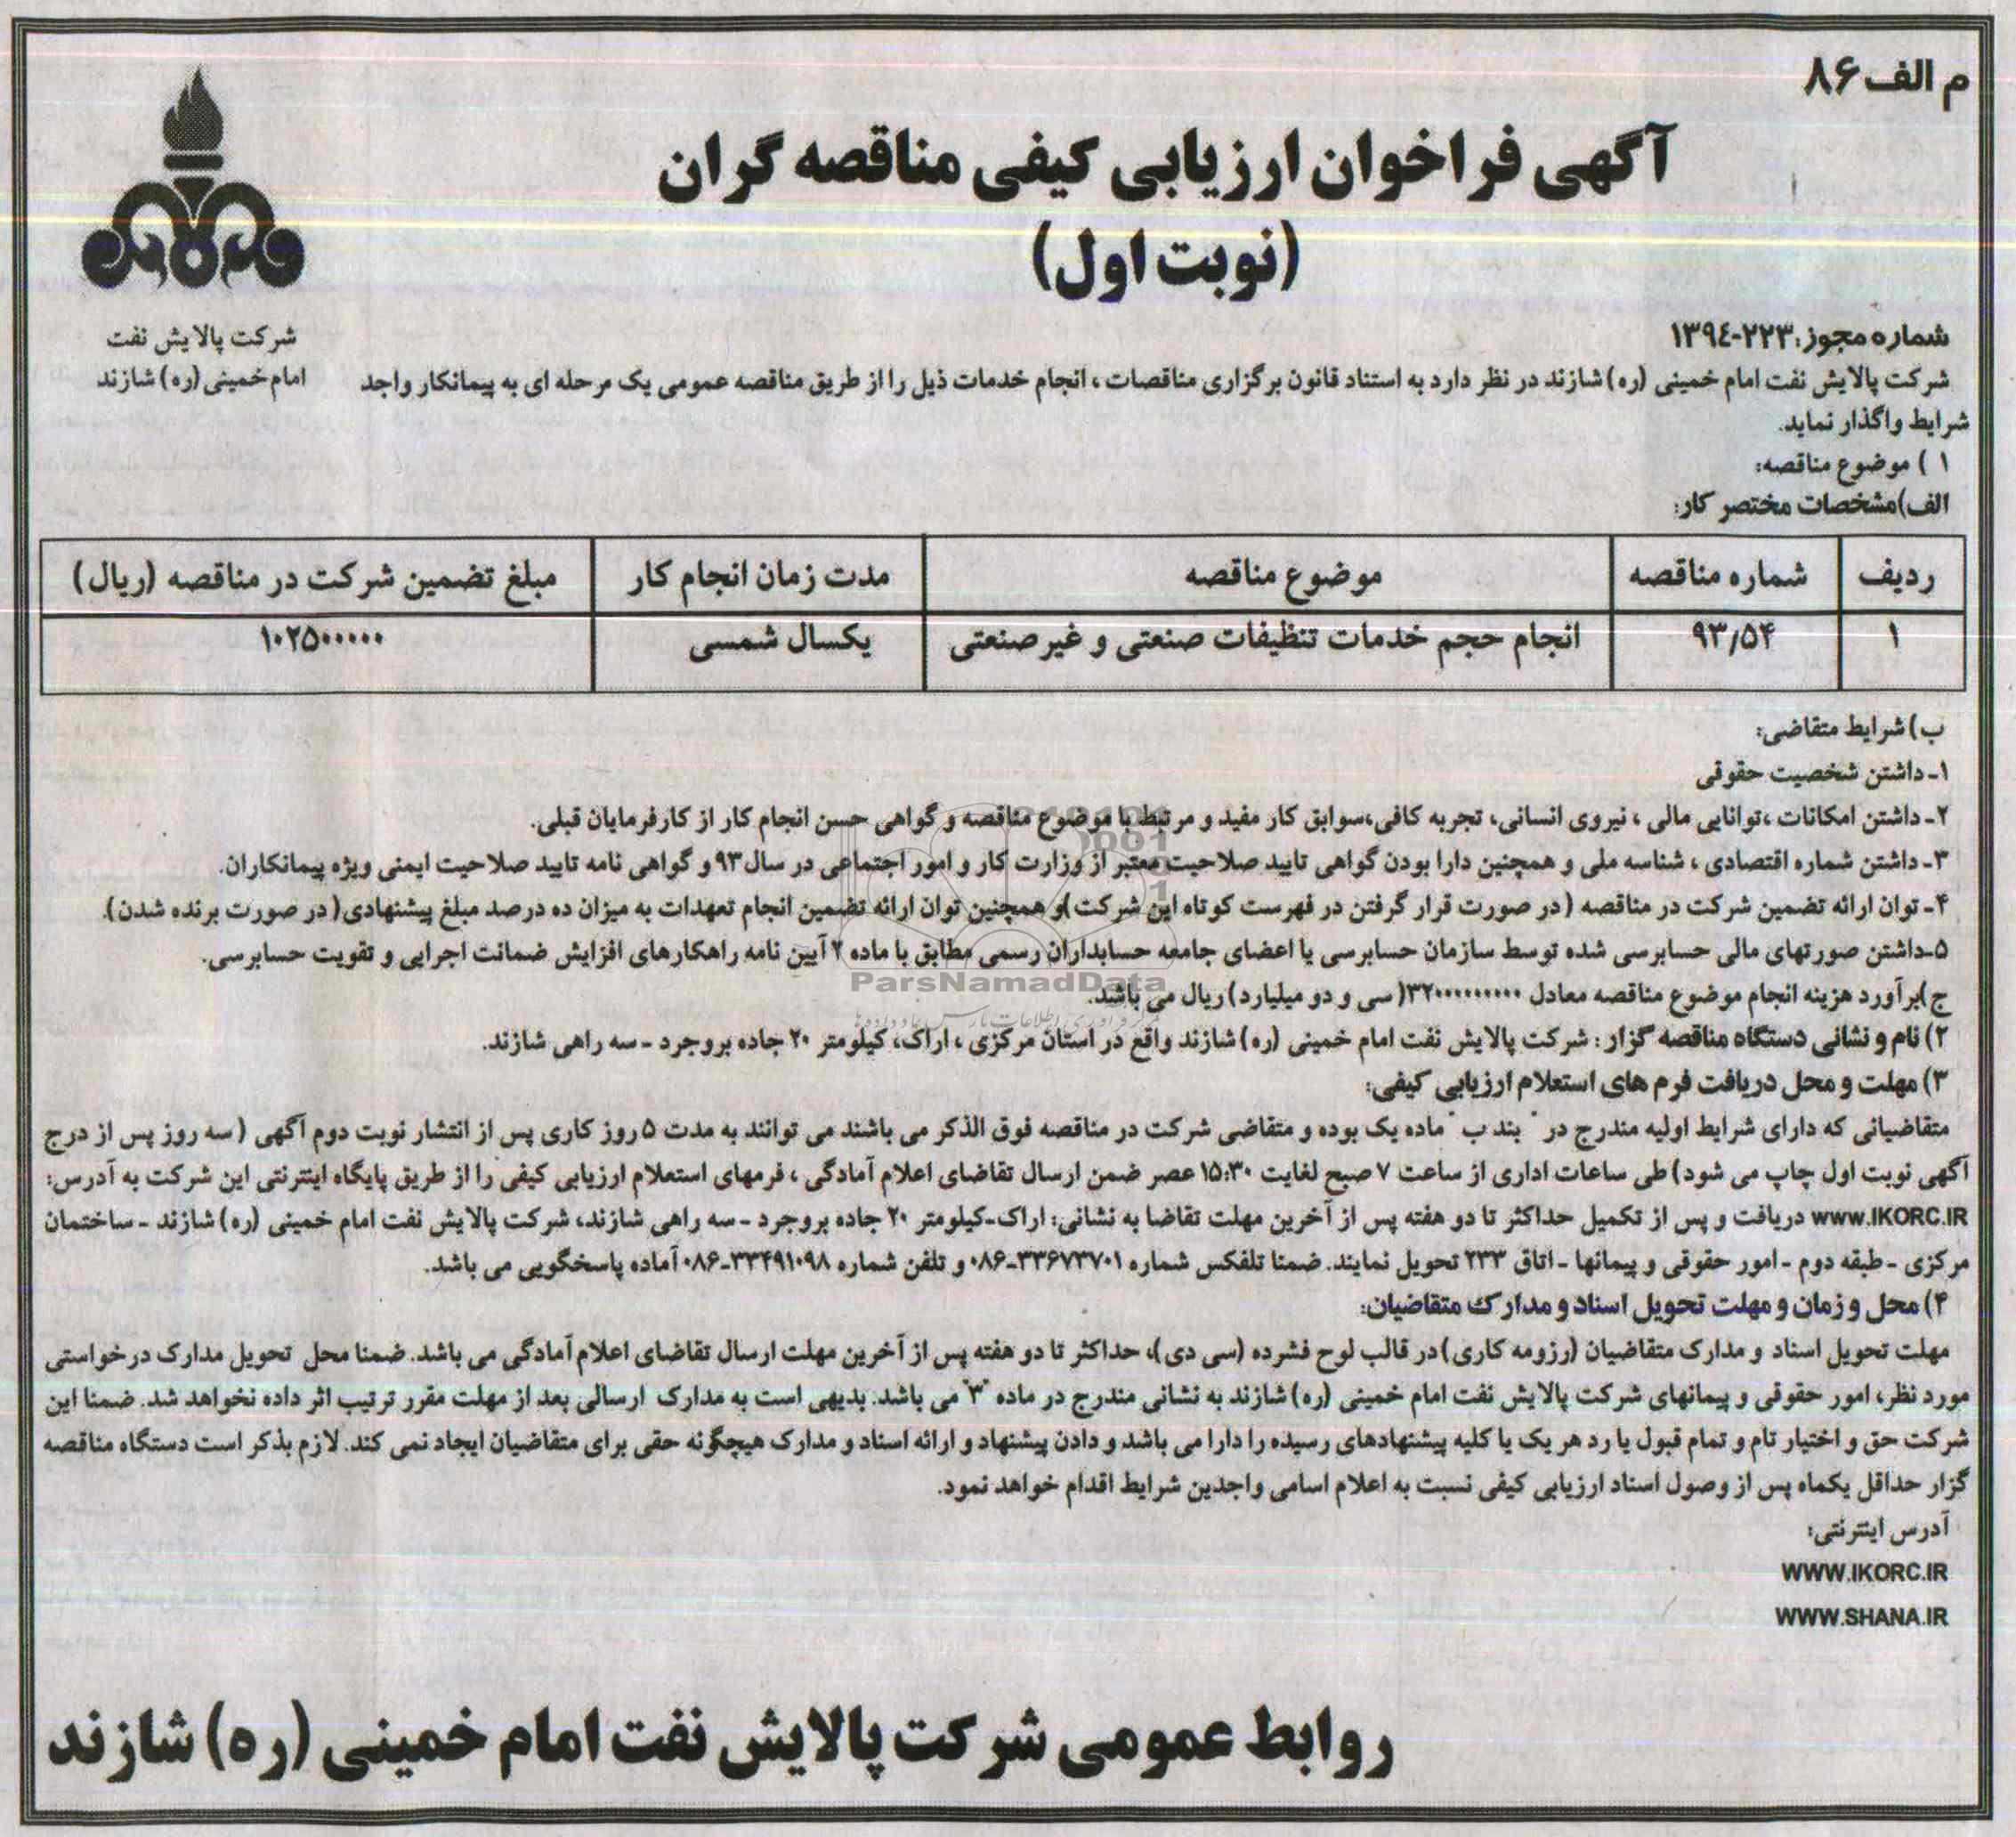 م الف ۸۶
آگهی فراخوان ارزیابی کیفی مناقصه گران
(نوبت اول)
شرکت پالایش نفت
امام خمینی (ره) شازند
شماره مجوز: ۱۳۹٤-۲۲۳
شرکت پالایش نفت امام خمینی (ره) شازند در نظر دارد به استناد قانون برگزاری مناقصات ، انجام خدمات ذیل را از طریق مناقصه عمومی یک مرحله ای به پیمانکار واجد
شرایط واگذار نماید.
۱ ) موضوع مناقصه:
الف)مشخصات مختصر کار:
ردیف | شماره مناقصه | موضوع مناقصه | مدت زمان انجام کار | مبلغ تضمین شرکت در مناقصه (ریال)
۱ | ۹۳/۵۴ | انجام حجم خدمات تنظیفات صنعتی و غیر صنعتی | یکسال شمسی | ۱۰۲۵۰۰۰۰۰۰
ب) شرایط متقاضی:
۱- داشتن شخصیت حقوقی
۲- داشتن امکانات ،توانایی مالی ، نیروی انسانی، تجربه کافی،سوابق کار مفید و مرتبط با موضوع مناقصه و گواهی حسن انجام کار از کارفرمایان قبلی.
۳- داشتن شماره اقتصادی ، شناسه ملی و همچنین دارا بودن گواهی تایید صلاحیت معتبر از وزارت کار و امور اجتماعی در سال ۹۳ و گواهی نامه تایید صلاحیت ایمنی ویژه پیمانکاران.
۴- توان ارائه تضمین شرکت در مناقصه ( در صورت قرار گرفتن در فهرست کوتاه این شرکت )و همچنین توان ارائه تضمین انجام تعهدات به میزان ده درصد مبلغ پیشنهادی( در صورت برنده شدن).
۵-داشتن صورتهای مالی حسابرسی شده توسط سازمان حسابرسی یا اعضای جامعه حسابداران رسمی مطابق با ماده ۲ آیین نامه راهکارهای افزایش ضمانت اجرایی و تقویت حسابرسی.
ParsNamadData
ج)برآورد هزینه انجام موضوع مناقصه معادل ۳۲۰۰۰۰۰۰۰۰۰( سی و دو میلیارد) ریال می باشد.
۲) نام و نشانی دستگاه مناقصه گزار : شرکت پالایش نفت امام خمینی (ره) شازند واقع در استان مرکزی ، اراک، کیلومتر ۲۰ جاده بروجرد - سه راهی شازند.
۳) مهلت و محل دریافت فرم های استعلام ارزیابی کیفی:
متقاضیانی که دارای شرایط اولیه مندرج در " بند ب " ماده یک بوده و متقاضی شرکت در مناقصه فوق الذکر می باشند می توانند به مدت ۵ روز کاری پس از انتشار نوبت دوم آگهی ( سه روز پس از درج
آگهی نوبت اول چاپ می شود) طی ساعات اداری از ساعت ۷ صبح لغایت ۱۵:۳۰ عصر ضمن ارسال تقاضای اعلام آمادگی ، فرمهای استعلام ارزیابی کیفی را از طریق پایگاه اینترنتی این شرکت به آدرس:
www.IKORC.IR دریافت و پس از تکمیل حداکثر تا دو هفته پس از آخرین مهلت تقاضا به نشانی: اراک-کیلومتر ۲۰ جاده بروجرد - سه راهی شازند، شرکت پالایش نفت امام خمینی (ره) شازند - ساختمان
مرکزی - طبقه دوم - امور حقوقی و پیمانها - اتاق ۲۳۳ تحویل نمایند. ضمنا تلفکس شماره ۳۳۶۷۳۷۰۱-۰۸۶ و تلفن شماره ۳۳۴۹۱۰۹۸-۰۸۶ آماده پاسخگویی می باشد.
۴) محل و زمان و مهلت تحویل اسناد و مدارک متقاضیان:
مهلت تحویل اسناد و مدارک متقاضیان (رزومه کاری) در قالب لوح فشرده (سی دی)، حداکثر تا دو هفته پس از آخرین مهلت ارسال تقاضای اعلام آمادگی می باشد. ضمنا محل تحویل مدارک درخواستی
مورد نظر، امور حقوقی و پیمانهای شرکت پالایش نفت امام خمینی (ره) شازند به نشانی مندرج در ماده "۳" می باشد. بدیهی است به مدارک ارسالی بعد از مهلت مقرر ترتیب اثر داده نخواهد شد. ضمنا این
شرکت حق و اختیار تام و تمام قبول یا رد هر یک یا کلیه پیشنهادهای رسیده را دارا می باشد و دادن پیشنهاد و ارائه اسناد و مدارک هیچگونه حقی برای متقاضیان ایجاد نمی کند. لازم بذکر است دستگاه مناقصه
گزار حداقل یکماه پس از وصول اسناد ارزیابی کیفی نسبت به اعلام اسامی واجدین شرایط اقدام خواهد نمود.
آدرس اینترنتی:
WWW.IKORC.IR
WWW.SHANA.IR
روابط عمومی شرکت پالایش نفت امام خمینی (ره) شازند